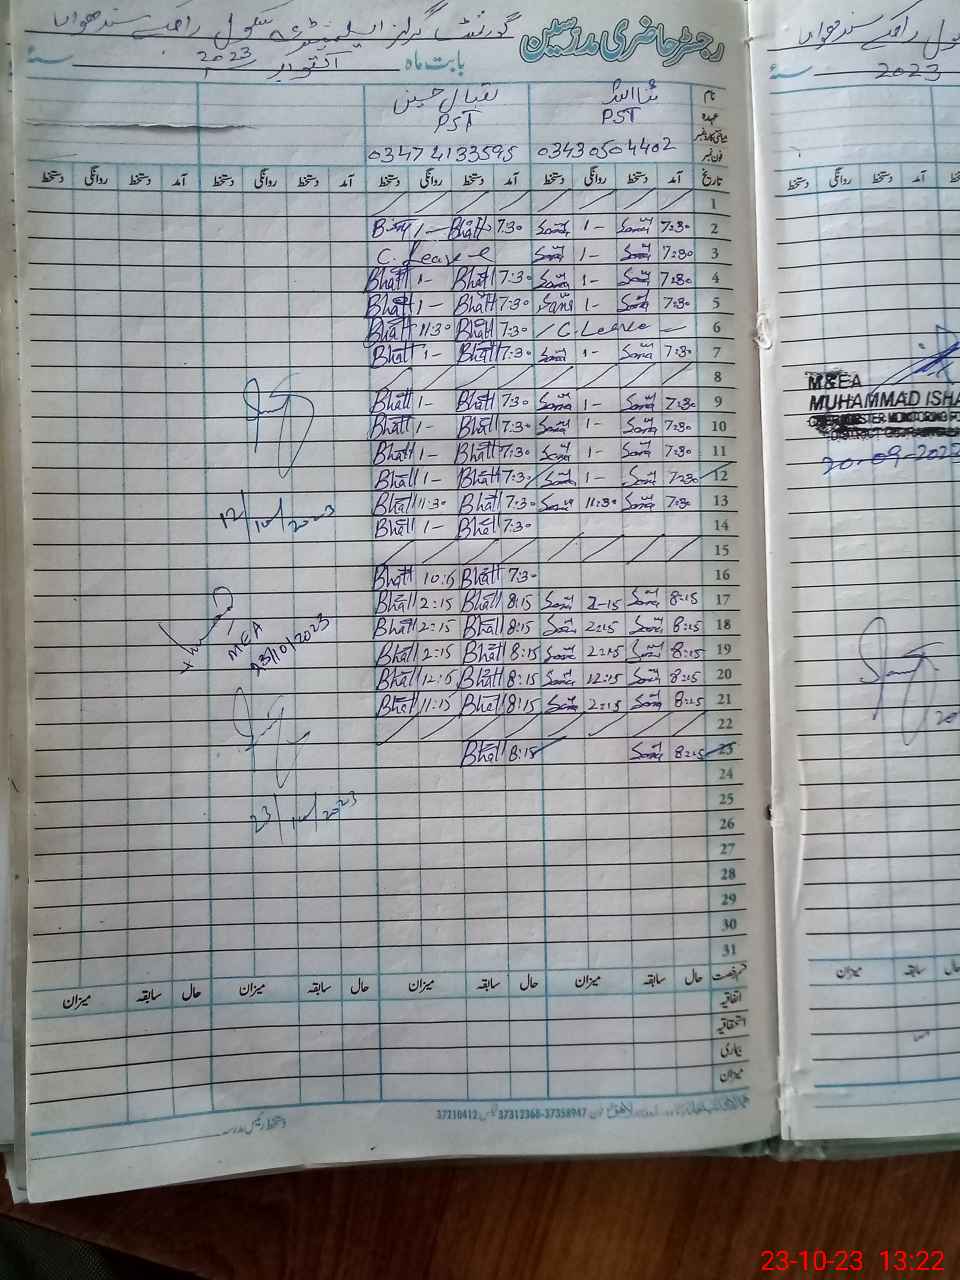 رجسٹر حاضری مدرسین
گورنمنٹ گرلز ایلیمنٹری سکول
بابت ماہ اکتوبر 2023 سنہ
نام ثنااللہ اقبال حسین
عہدہ PST PST
فون نمبر 03430504402 03474133595
تاریخ آمد دستخط روانگی دستخط آمد دستخط روانگی دستخط آمد دستخط روانگی دستخط آمد دستخط روانگی دستخط
1
2 7:30 Sana 1- Sana 7:30 Bhatti 1-
3 7:30 Sana 1- Sana C. Leave
4 7:30 Sana 1- Sana 7:30 Bhatti 1- Bhatti
5 7:30 Sana 1- Sana 7:30 Bhatti 1- Bhatti
6 C. Leave 7:30 Bhatti 11:30 Bhatti
7 7:30 Sana 1- Sana 7:30 Bhatti 1- Bhatti
8
9 7:30 Sana 1- Sana 7:30 Bhatti 1- Bhatti
10 7:30 Sana 1- Sana 7:30 Bhatti 1- Bhatti
11 7:30 Sana 1- Sana 7:30 Bhatti 1- Bhatti
12 7:30 Sana 1- Sana 7:30 Bhatti 1- Bhatti
13 7:30 Sana 11:30 Sana 7:30 Bhatti 11:30 Bhatti
14 7:30 Bhatti 1- Bhatti
15
16 7:30 Bhatti 10:15 Bhatti
17 8:15 Sana 2-15 Sana 8:15 Bhatti 2:15 Bhatti
18 8:15 Sana 2:15 Sana 8:15 Bhatti 2:15 Bhatti
19 8:15 Sana 2:15 Sana 8:15 Bhatti 2:15 Bhatti
20 8:15 Sana 12:15 Sana 8:15 Bhatti 12:15 Bhatti
21 8:15 Sana 2:15 Sana 8:15 Bhatti 11:15 Bhatti
22
23 8:15 Sana 8:15 Bhatti
24
25
26
27
28
29
30
31
12/10/2023
MEA
23/10/2023
23/10/2023
قسم رخصت حال سابقہ میزان حال سابقہ میزان حال سابقہ میزان حال سابقہ میزان
اتفاقیہ
استحقاقیہ
بیماری
میزان
لاہور فون 37312368-37358947 فیکس: 37210412
دستخط رئیس مدرسہ
2023 سنہ
دستخط روانگی دستخط آمد
M&EA
MUHAMMAD ISHA
20-09-202
حال سابقہ میزان
23-10-23 13:22